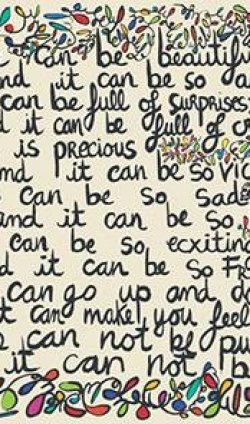 can be beautiful
and it can be so
can be full of surprises
it can be full of
is precious
and it can be so
can be so
and it can be so
can be so ecxiting
it can be so
can go up and
can make you feel
can not be
it can not